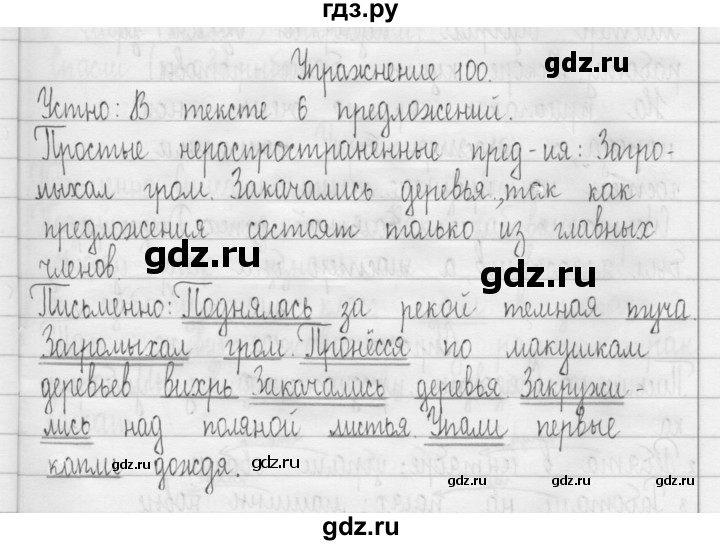 гдз.ру
Упражнение 100.
Устно: В тексте 6 предложений.
Простые нераспространенные пред-ия: Загро-
мыхал гром. Закачались деревья., так как
предложения состоят только из главных
gdz.ru
gdz.ru
членов.
Письменно: Поднялась за рекой темная туча.
Загромыхал гром. Пронёсся по макушкам
деревьев вихрь. Закачались деревья. Закружи-
лись над поляной листья. Упали первые
капли дождя.
gdz.ru
gdz.ru
gdz.ru
gdz.ru